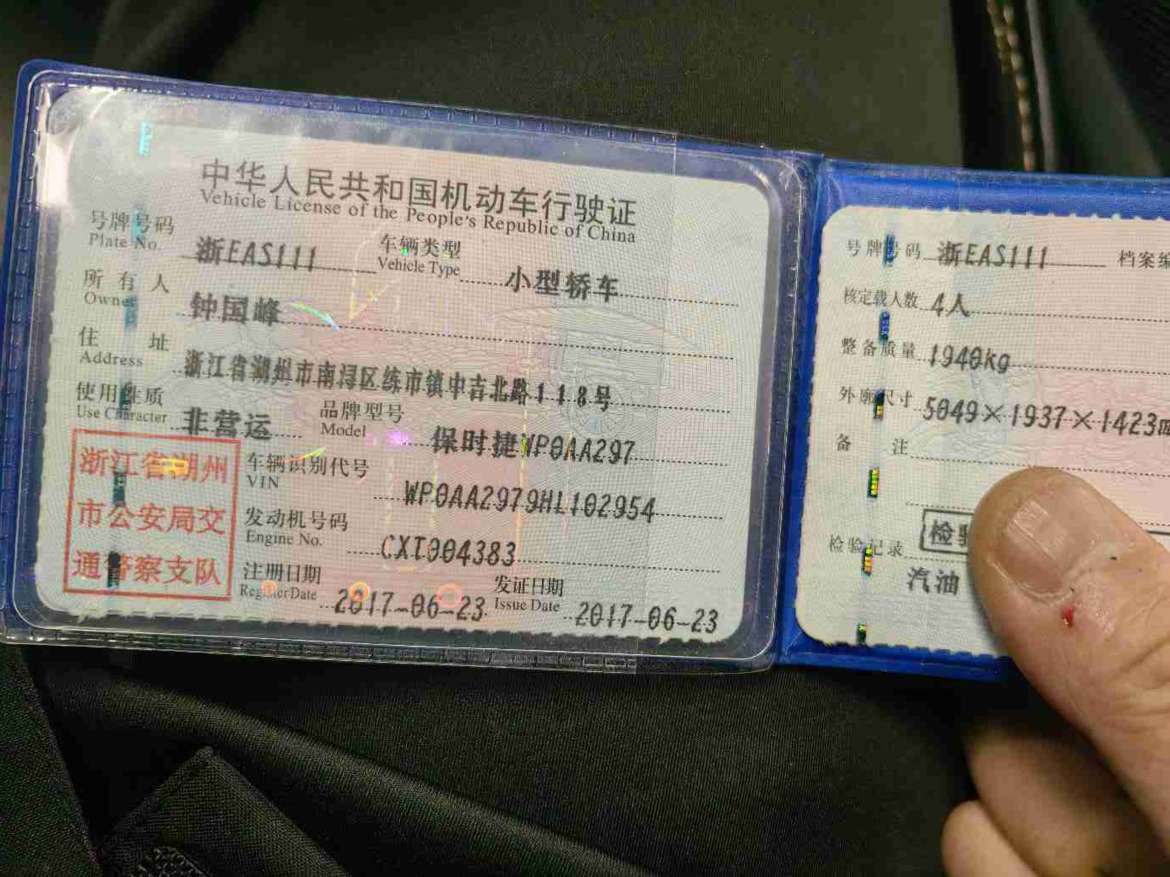 中华人民共和国机动车行驶证
Vehicle License of the People's Republic of China
号牌号码 浙EAS111 车辆类型 小型轿车
Plate No. Vehicle Type
所有人 钟国峰
Owner
住址 浙江省湖州市南浔区练市镇中吉北路118号
Address
使用性质 非营运 品牌型号 保时捷WP0AA297
Use Character Model
浙江省湖州
市公安局交
通警察支队
车辆识别代号 WP0AA2979HL102954
VIN
发动机号码 CXT004383
Engine No.
注册日期 2017-06-23 发证日期 2017-06-23
Register Date Issue Date
号牌号码 浙EAS111 档案编
核定载人数 4人
整备质量 1940kg
外廓尺寸 5049×1937×1423
备注
检验记录 检验
汽油